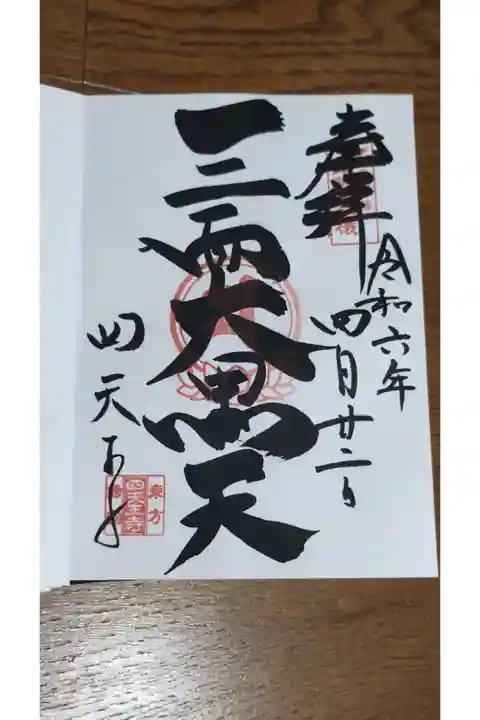 奉拝
令和六年
四月廿二日
三面大黒天
四天王寺
東方
四天王寺